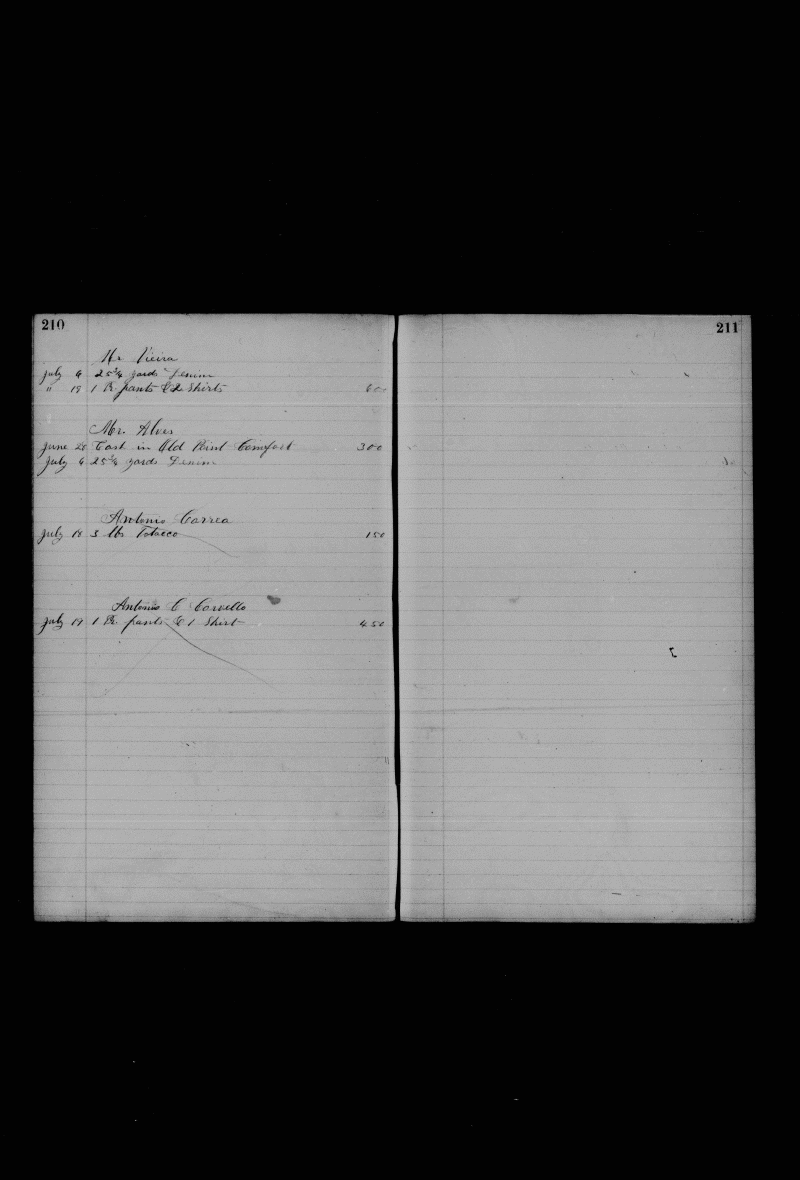 210
Mr Vieira
July 6 25 3/4 yards Denim
" 19 1 Pr pants & 2 Shirts 600
Mr. Alves
June 20 Cash in Old Point Comfort 300
July 6 25 3/4 yards Denim
Antonio Correa
July 18 3 lbs Tobacco 150
Antonio C Corvello
July 19 1 Pr pants & 1 Shirt 450
211